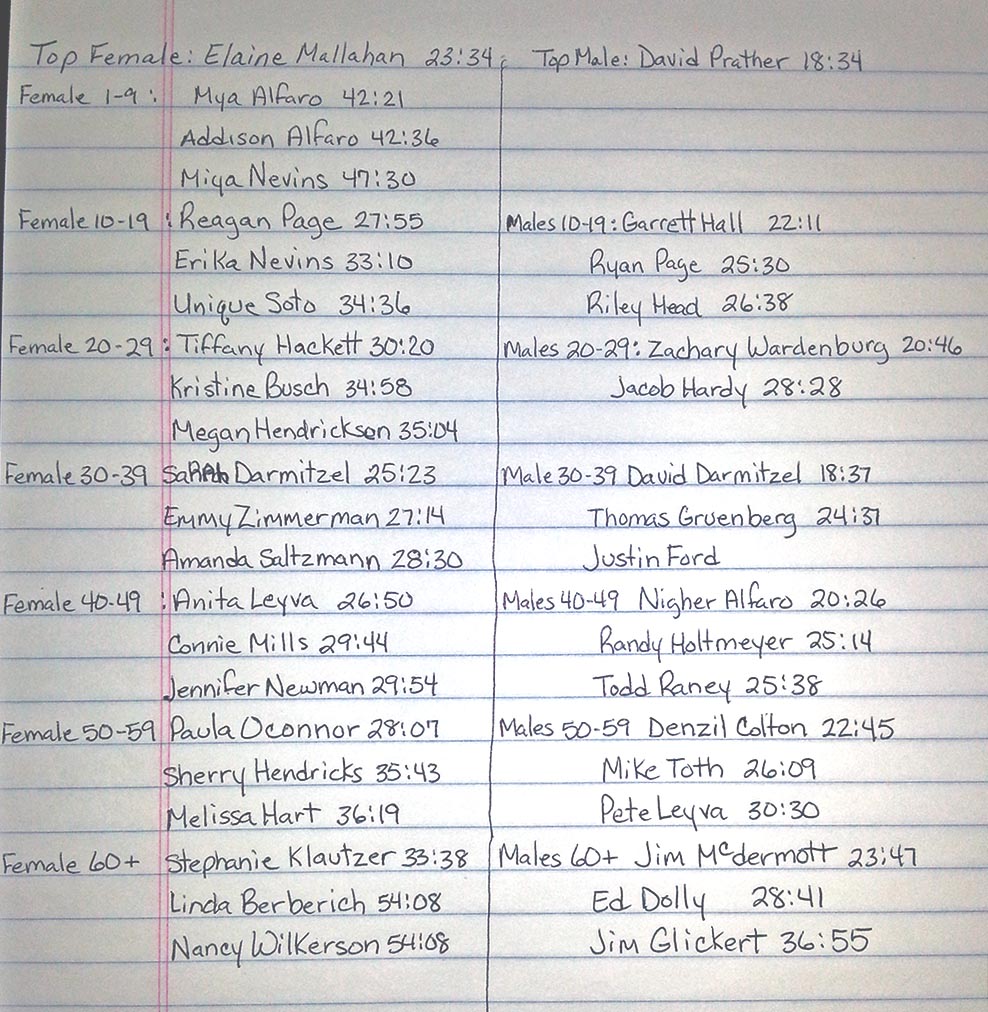 Top Female: Elaine Mallahan 23:34; Top Male: David Prather 18:34
Female 1-9: Mya Alfaro 42:21
Addison Alfaro 42:36
Miya Nevins 47:30
Female 10-19: Reagan Page 27:55 Males 10-19: Garrett Hall 22:11
Erika Nevins 33:10 Ryan Page 25:30
Unique Soto 34:36 Riley Head 26:38
Female 20-29: Tiffany Hackett 30:20 Males 20-29: Zachary Wardenburg 20:46
Kristine Busch 34:58 Jacob Hardy 28:28
Megan Hendrickson 35:04
Female 30-39 Sarah Darmitzel 25:23 Male 30-39 David Darmitzel 18:37
Emmy Zimmerman 27:14 Thomas Gruenberg 24:37
Amanda Saltzmann 28:30 Justin Ford
Female 40-49: Anita Leyva 26:50 Males 40-49 Nigher Alfaro 20:26
Connie Mills 29:44 Randy Holtmeyer 25:14
Jennifer Newman 29:54 Todd Raney 25:38
Female 50-59 Paula Oconnor 28:07 Males 50-59 Denzil Colton 22:45
Sherry Hendricks 35:43 Mike Toth 26:09
Melissa Hart 36:19 Pete Leyva 30:30
Female 60+ Stephanie Klautzer 33:38 Males 60+ Jim McDermott 23:47
Linda Berberich 54:08 Ed Dolly 28:41
Nancy Wilkerson 54:08 Jim Glickert 36:55